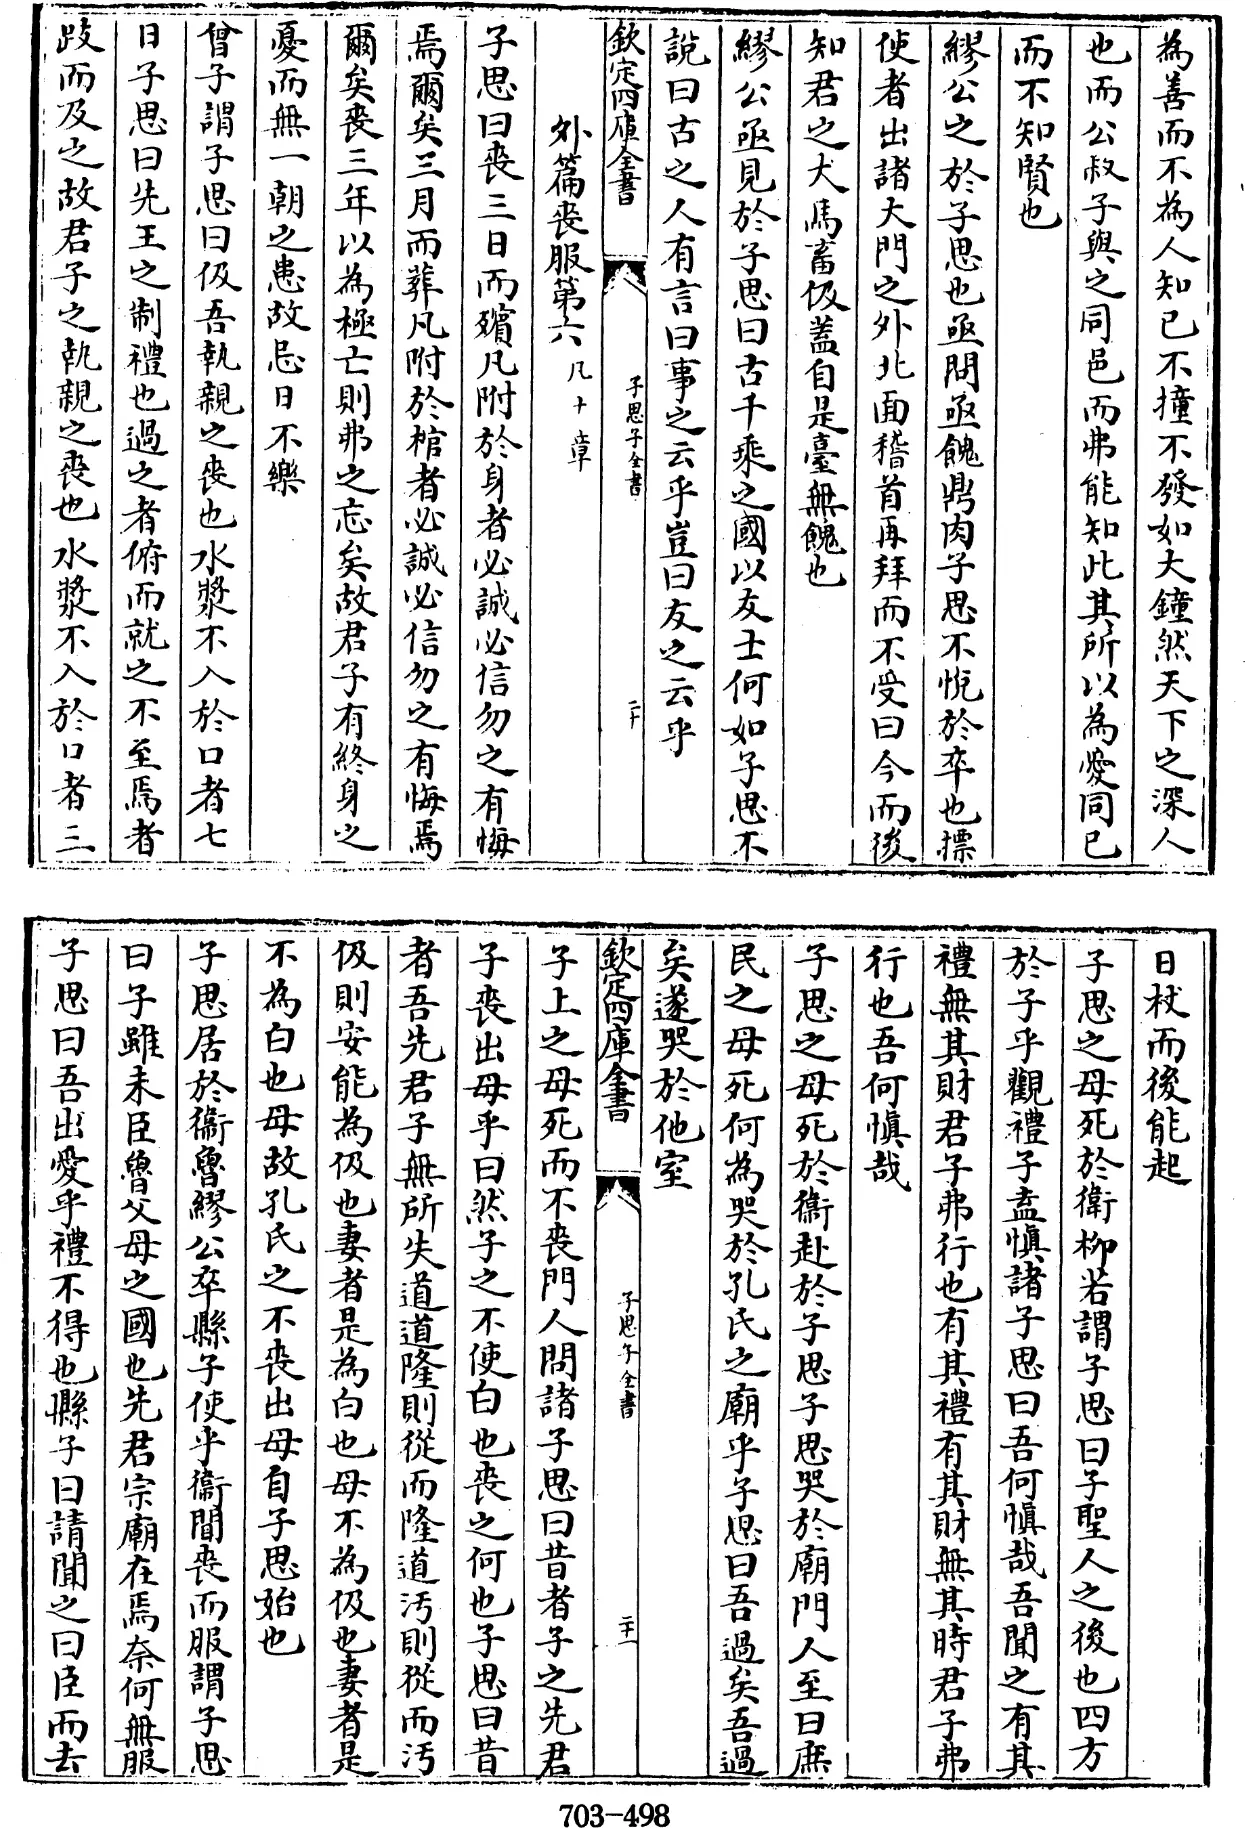 為善而不為人知已不撞不發如大鐘然天下之深人
也而公叔子與之同邑而弗能知此其所以為愛同已
而不知賢也
繆公之於子思也亟問亟餽鼎肉子思不悅於卒也摽
使者出諸大門之外北面稽首再拜而不受曰今而後
知君之犬馬畜伋蓋自是臺無餽也
繆公亟見於子思曰古千乘之國以友士何如子思不
說曰古之人有言曰事之云乎豈曰友之云乎
欽定四庫全書
子思子全書
二十
外篇喪服第六凡十章
子思曰喪三日而殯凡附於身者必誠必信勿之有悔
焉爾矣三月而葬凡附於棺者必誠必信勿之有悔焉
爾矣喪三年以為極亡則弗之忘矣故君子有終身之
憂而無一朝之患故忌日不樂
曾子謂子思曰伋吾執親之喪也水漿不入於口者七
日子思曰先王之制禮也過之者俯而就之不至焉者
跂而及之故君子之執親之喪也水漿不入於口者三
日杖而後能起
子思之母死於衛柳若謂子思曰子聖人之後也四方
於子乎觀禮子盍慎諸子思曰吾何慎哉吾聞之有其
禮無其財君子弗行也有其禮有其財無其時君子弗
行也吾何慎哉
子思之母死於衞赴於子思子思哭於廟門人至曰庶
民之母死何為哭於孔氏之廟乎子思曰吾過矣吾過
矣遂哭於他室
欽定四庫全書
子思子全書
二十一
子上之母死而不喪門人問諸子思曰昔者子之先君
子喪出母乎曰然子之不使白也喪之何也子思曰昔
者吾先君子無所失道道隆則從而隆道汚則從而汚
伋則安能為伋也妻者是為白也母不為伋也妻者是
不為白也母故孔氏之不喪出母自子思始也
子思居於衞魯繆公卒縣子使乎衞聞喪而服謂子思
曰子雖未臣魯父母之國也先君宗廟在焉奈何無服
子思曰吾出愛乎禮不得也縣子曰請聞之曰臣而去
703-498